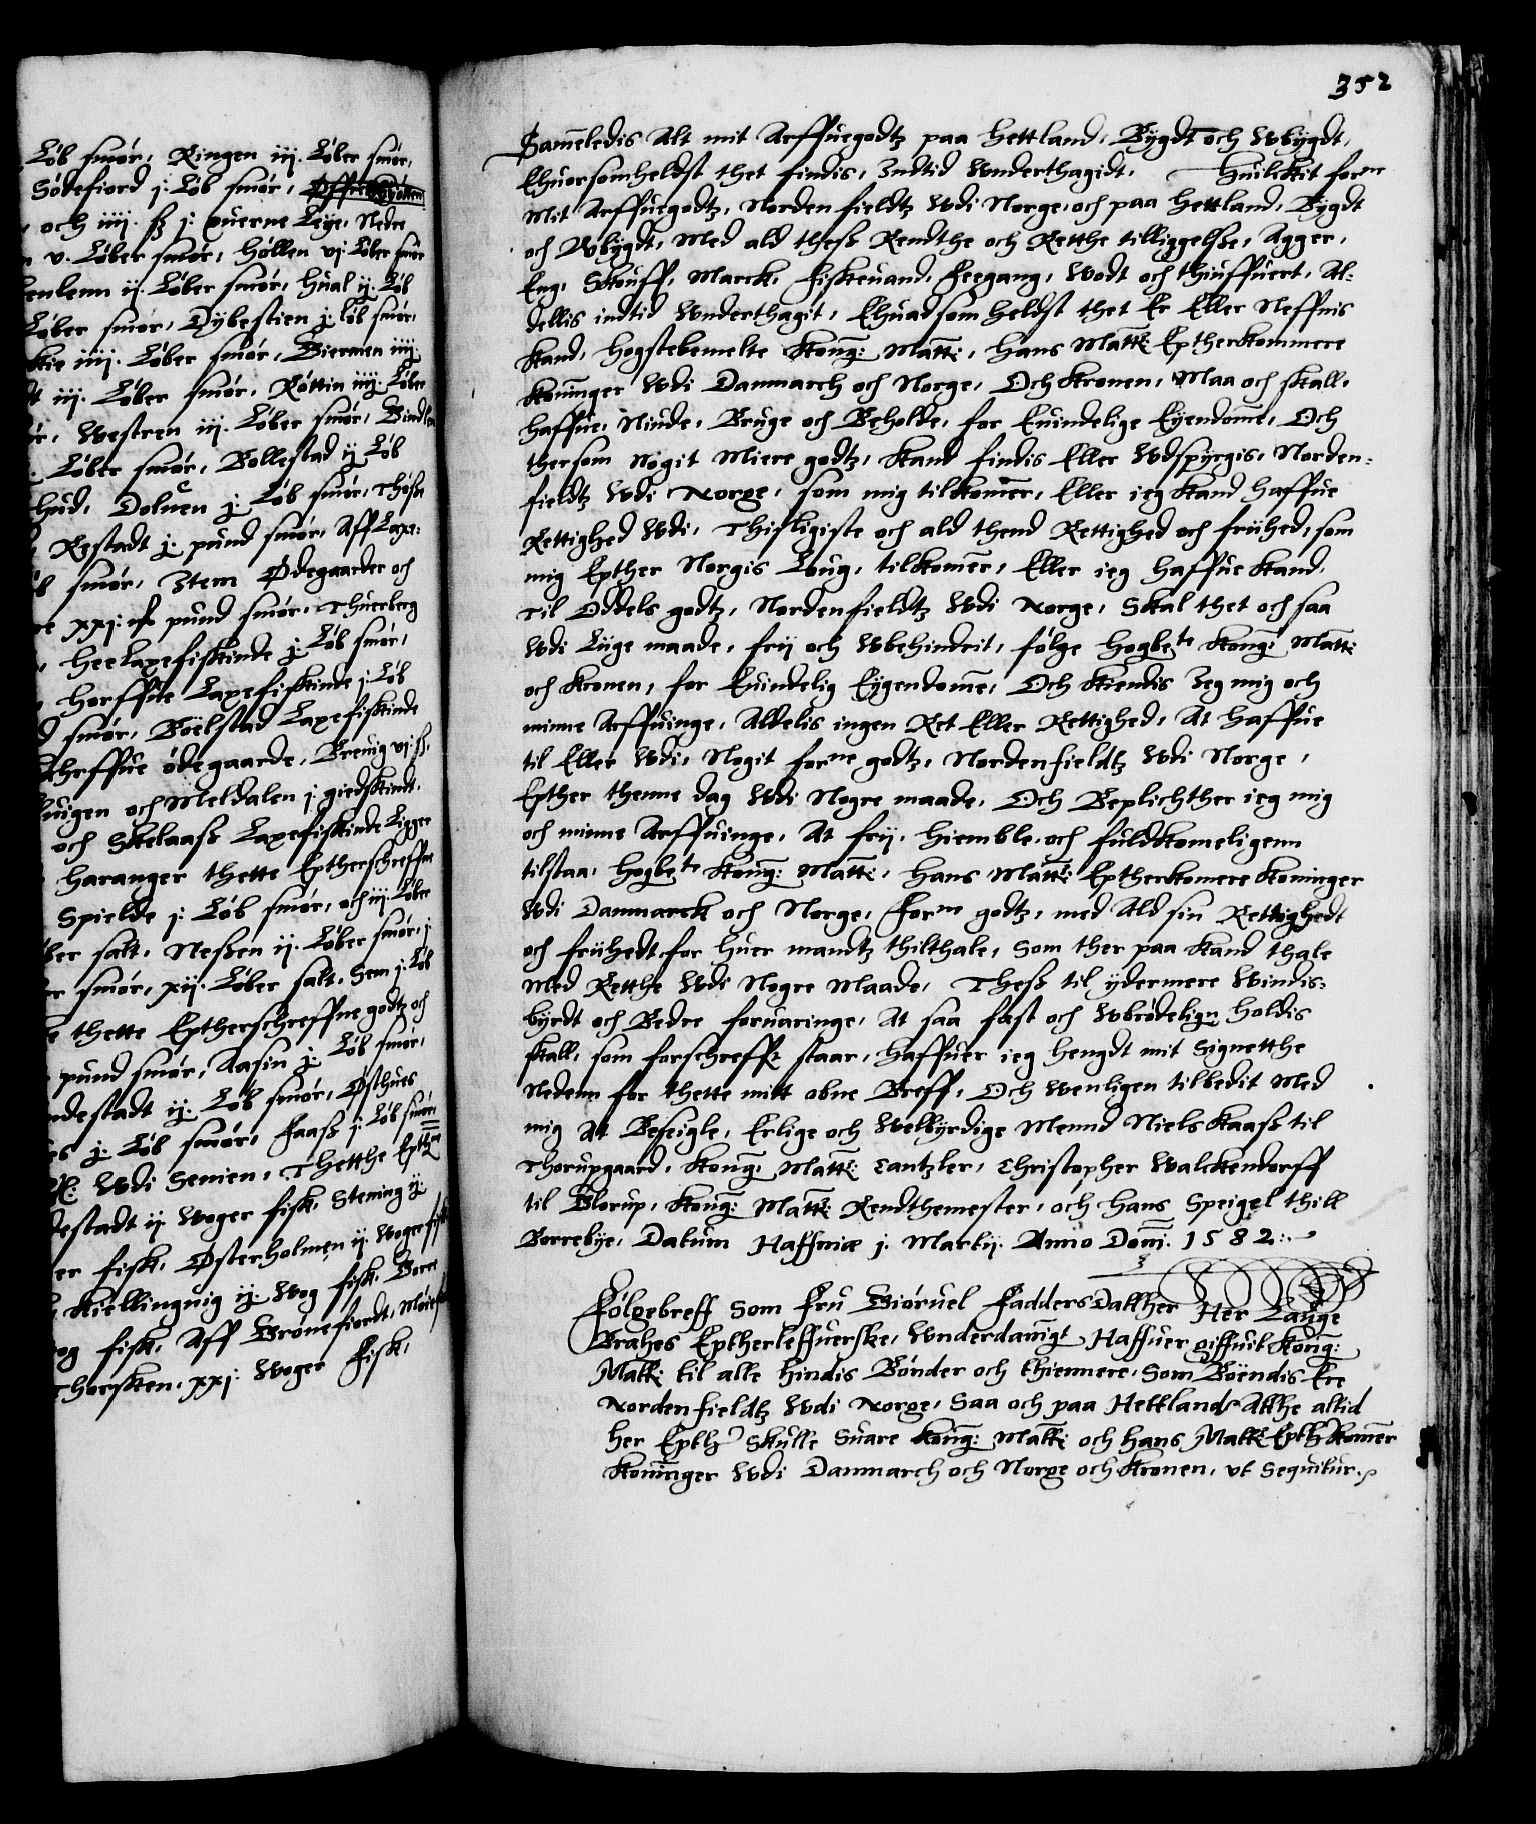 Løb smør, Ringen iij. Løber smør,
Sødefiord j: Løb smør,
och iiij. ß j: Øuerne Leye, Nedre
v. Løber smør, Høllen vj. Løber smør
enlenn ij. Løber smør, Hual ij. Løb
Løber smør, Dybestien j: løb smør,
kie iiij. Løber smør, Biermen iiij
iij. Løber smør, Røttin iiij. Løber
Westren iij. Løber smør,
Løber smør, Bollestad ij Løb
hud, Doluen j: Løb smør,
Rystadt j: pund smør, Aff Laxe:
smør, Item Ødegaarder och
xxj: pund smør, Thuerberg
hee Laxefiskinde j: Løb smør,
horffue Laxefiskinde j: Løb
smør, Boëlstad Laxefiskinde
ødegaarde, Breuig vj: ß,
uigen och Meldalen j: giedskindt,
och Skelaaß Laxefiskinde Ligger
Haranger thette Eptherschreffne
Spielde j: Løb smør, och iij: Løber
ber salt, Neßen ij: Løber smør, j
er smør, xij: Løber salt, Sem j: Løb
thette Eptherschreffne godtz och
pund smør, Aasin j: Løb smør,
ndestadt ij: Løb smør, Østhues
es j: Løb smør, Faaß j: Løb smør,
Wdi Senien, Thetthe
estadt ij Woger fisk, Stening ij:
er fisk, Østerholmen ij: Woger fisk
Kiellinguig ij: Wog fisk,
og fisk, Aff Brønefiordt,
Thorsken, xxj: Woger Fisk,
352
Sameledis Alt mit Arffuegodtz paa Hettland, Bygdt och Wbygdt,
Ehuorsomheldst thet findis, Indtid Wnderthagidt, Huilckit forne
Mit Arffuegodtz, Norden fieldtz Wdi Norge, och paa Hettland, Bygdt
och Wbygdt, Med ald theß Rendthe och Retthe tilliggelße, Agger,
Eng, Skouff, Marck, fiskeuand, Feegang, Wodt och thiuffuert, Al-
dellis indtid Wnderthagit, Ehuad som heldst thet Er Eller Neffnis
Kand, Hogstebemelte Kong: Matt:, Hans Matt: Eptherkommere
Koninger Wdi Danmarch och Norge, Och Kronen, Maa och skall,
haffue, Niude, Bruge och Beholde, for Euindelige Eyendome, Och
thersom Nogit Miere godtz, Kand findis Eller Wdspyrgis, Norden-
fieldtz Wdi Norge, som mig tilkomer, Eller ieg Kand haffue
Rettighed Wdi, Thisligiste och ald thend Rettighed och friihed, som
mig Epther Norgis Loug, tilkomer, Eller ieg haffue Kand,
Til Oddels godtz, Nordenfieldtz Wdi Norge, Skal thet och saa
Wdi Liige maade, frii och Wbehindrit, følge Hogbete Kong: Matt:
och Kronen, for Euindelig Eygendome, Och Kiendis Jeg mig och
minne Arffuinge, Aldelis ingen Ret Eller Rettighed, At haffue
til Eller Wdi, Nogit forne godtz, Nordenfieldtz Wdi Norge,
Epther thenne dag Wdi Nogre maade, Och Beplichther ieg mig
och minne Arffuinge, At frij, Hiemble, och fuldkomeligenn
tilstaa, Hogbete Kong: Matt:, Hans Matt: Eptherkomere Koninger
Wdi Danmarck och Norge, forne godtz, med Ald sin Rettighedt
och friihedt, for Huer mandtz thilthale, Som ther paa Kand thale
Med Retthe Wdi Nogre Maade, Theß til ydermere Windis-
byrdt och Bedre foruaringe, At saa fast och Wbrødelign Holdis
skall, som forschreffit staar, Haffuer ieg Hengdt mit Signetthe
Nedenn for thette mitt obne Breff, Och Wenligen tilbedit Med
mig At Beseigle, Erlige och Welbyrdige Mennd Niels Kaaß til
Thorupgaard, Kong: Matt: Cantzler, Christopher Walckendorff
til Glorup, Kong: Matt: Rendthemester, och Hans Speigel thill
Borrebye, Datum Haffniæ j. Martij. Anno Domj. 1582.
Følgebreff Som Fru Giøruel Fadders Datther Her Lauge
Brahes Eptherleffuerske, Wnderdanigt Haffuer giffuit Kong:
Matt: til alle Hindis Bønder och thiennere, Som Boëndis Ere
Norden fieldtz Wdi Norge, Saa och paa Hettland, Atthe altid
her Epth: Skulle Suare Kong: Matt: och Hans Matt: Epth:komer
Koninger Wdi Danmarch och Norge och Kronen, vt Sequitur.